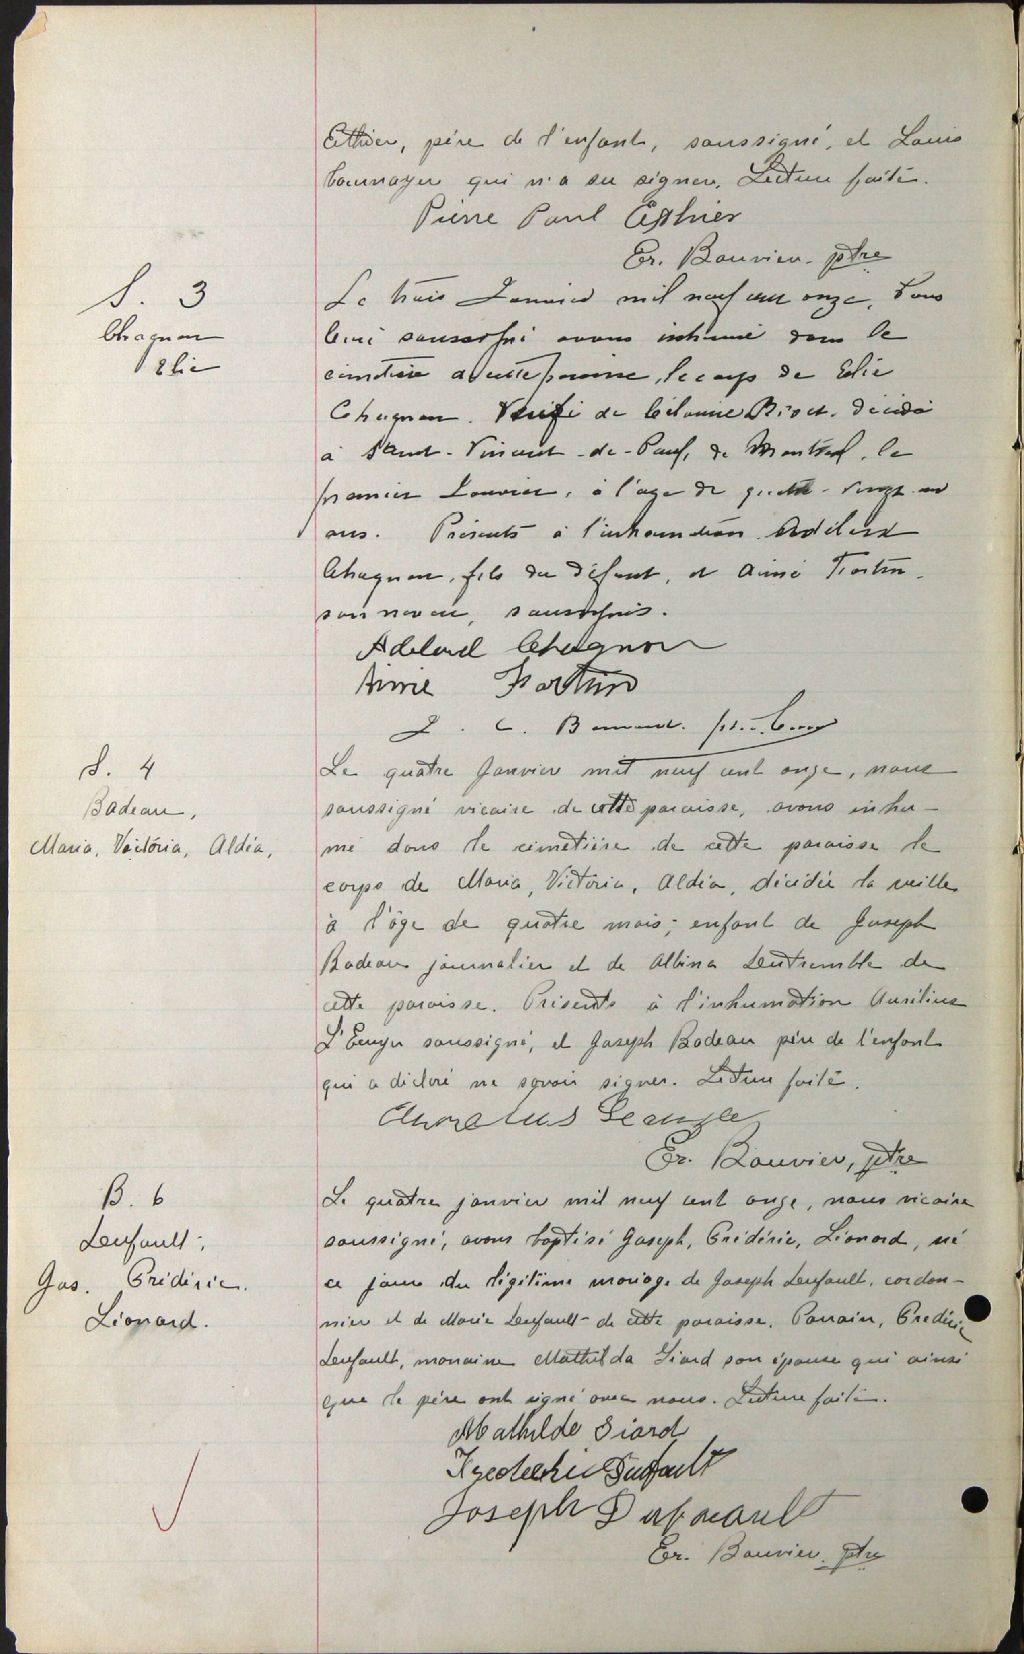 Ethier, père de l'enfant, soussigné, et Louis
Tournoyer qui n'a su signer. Lecture faite.
Pierre Paul Ethier
Er. Bouvier. ptre
S. 3
Chagnon
Elie
Le trois Janvier mil neuf cent onze, Nous
Curé soussigné avons inhumé dans le
cimetière de cette paroisse, le corps de Elie
Chagnon. Veuf de Célanire décédé
à Saint-Vincent-de-Paul, de Montréal, le
premier Janvier, à l'age de quatre-vingt-un
ans. Présents à l'inhumation Adélard
Chagnon, fils du défunt, et Aimé Fortin
son neveu, soussignés.
Adelard Chagnon
Aimé Fortin
J. C. Bernard. ptre. Curé
S. 4
Badeau,
Maria, Victoria, Aldéa,
Le quatre janvier mil neuf cent onze, nous
soussigné vicaire de cette paroisse, avons inhu-
mé dans le cimetière de cette paroisse le
corps de Maria, Victoria, Aldéa, décédée la veille
à l'âge de quatre mois; enfant de Joseph
Badeau journalier et de Albina Deutremble de
cette paroisse. Présents à l'inhumation Aurélius
L'Ecuyer soussigné, et Joseph Badeau père de l'enfant
qui a déclaré ne savoir signer. Lecture faite.
Er. Bouvier, ptre
B. 6
Dufault,
Jos. Frédéric.
Léonard.
Le quatre janvier mil neuf cent onze, nous vicaire
soussigné, avons baptisé Joseph, Frédéric, Léonard, né
ce jour du légitime mariage de Joseph Dufault, cordon-
nier et de Marie Dufault de cette paroisse. Parrain, Frédéric
Dufault, marraine Mathilda Giard son épouse qui ainsi
que le père ont signé avec nous. Lecture faite.
Mathilde Giard
Frederic Dufault
Joseph Dufault
Er. Bouvier. ptre